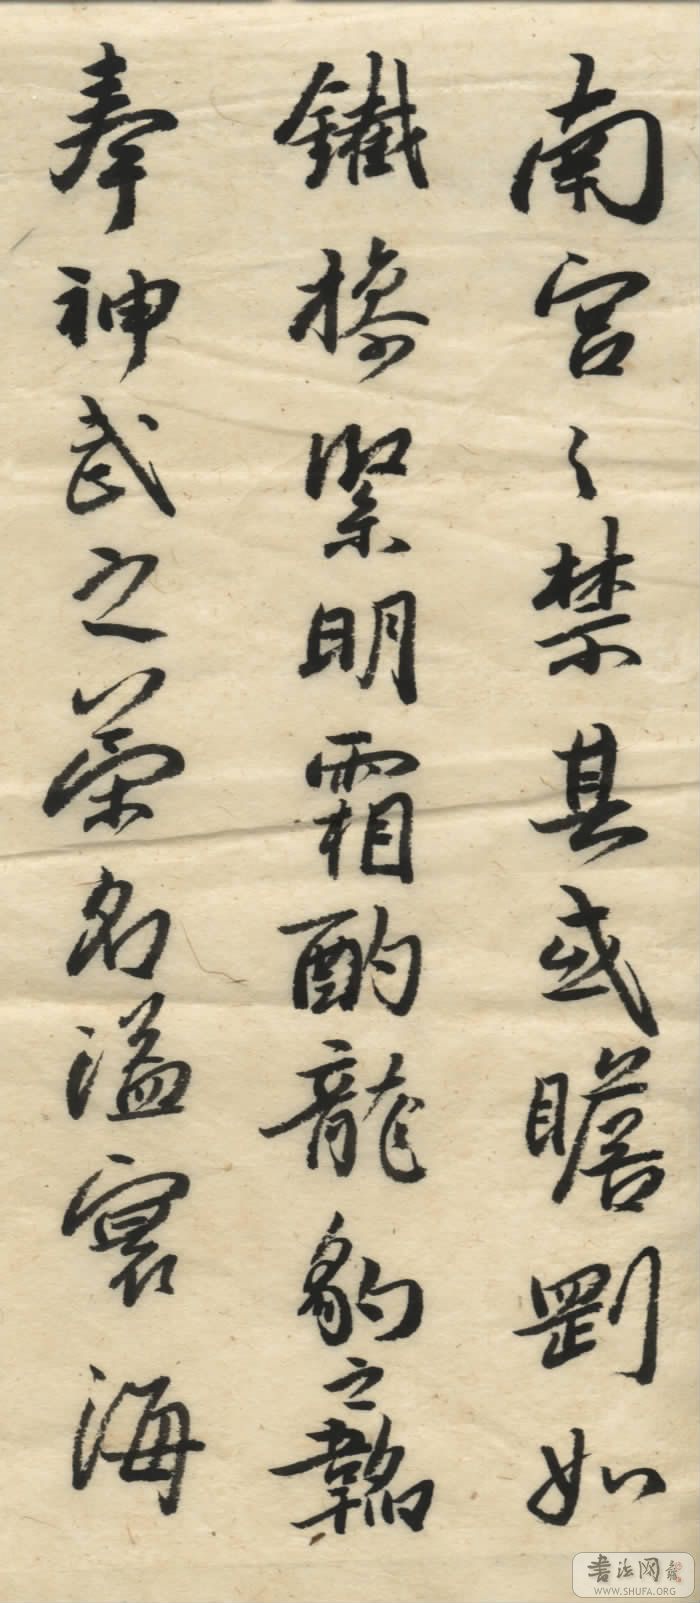 南宫之禁其或瞻剛如
鐵操緊明霜酌龍豹之韜
奉神武之榮名溢寰海
書法网
WWW.SHUFA.ORG